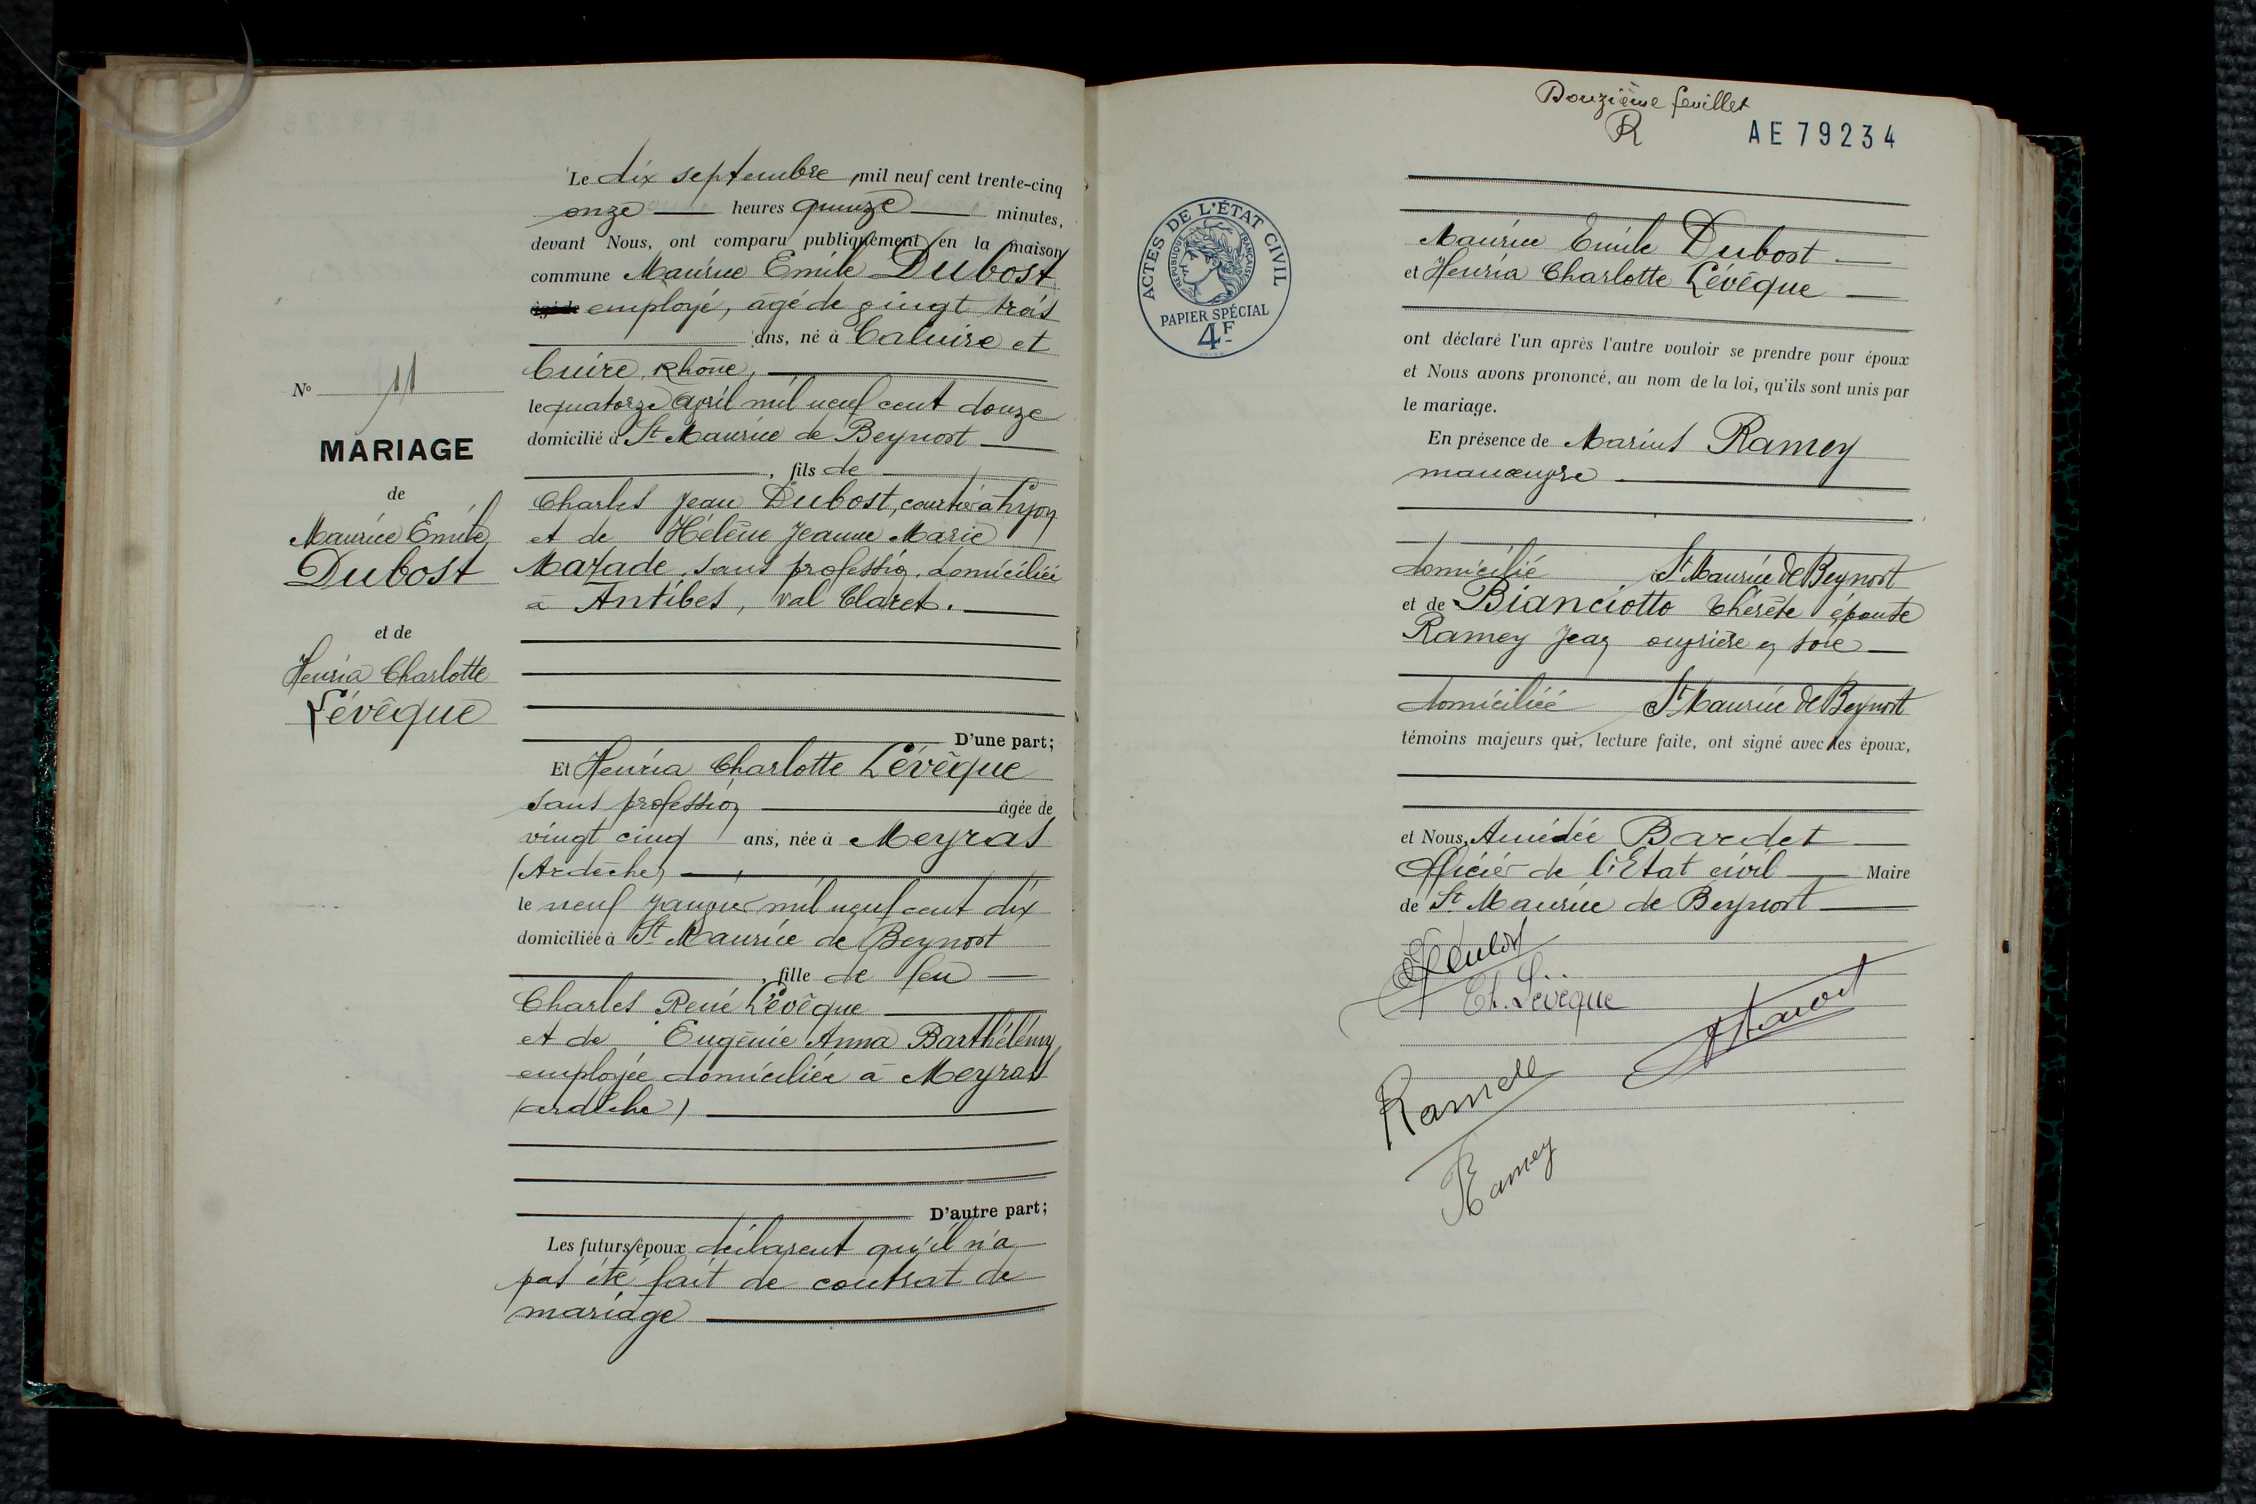 Le dix septembre mil neuf cent trente-cinq
onze heures quinze minutes,
devant Nous, ont comparu publiquement en la maison
commune Maurice Emile Dubost
employé, âgé de vingt trois
ans, né à Caluire et
Cuire, Rhône,
le quatorze avril mil neuf cent douze
domicilié à St Maurice de Beynost
, fils de
Charles Jean Dubost, courtier à Lyon
et de Hélène Jeanne Marie
Mazade, sans profession, domiciliée
à Antibes, Val Claret.
D'une part;
Et Henria Charlotte Lévêque
sans profession âgée de
vingt cinq ans, née à Meyras
(Ardèche)
le neuf janvier mil neuf cent dix
domiciliée à St Maurice de Beynost
, fille de feu
Charles René Lévêque
et de Eugénie Anna Barthélémy
employée domiciliée à Meyras
(ardèche)
D'autre part;
Les futurs époux déclarent qu'il n'a
pas été fait de contrat de
mariage
N° 11
MARIAGE
de
Maurice Emile
Dubost
et de
Henria Charlotte
Lévêque
Douzième feuillet
R
AE 79234
ACTES DE L'ÉTAT CIVIL
RÉPUBLIQUE FRANÇAISE
PAPIER SPÉCIAL
4F
Maurice Emile Dubost
et Henria Charlotte Lévêque
ont déclaré l'un après l'autre vouloir se prendre pour époux
et Nous avons prononcé, au nom de la loi, qu'ils sont unis par
le mariage.
En présence de Marius Ramey
manœuvre
domicilié St Maurice de Beynost
et de Bianciotto Thérèse épouse
Ramey Jean ouvrière en soie
domiciliée St Maurice de Beynost
témoins majeurs qui, lecture faite, ont signé avec les époux,
et Nous, Amédée Bardet
Officier de l'Etat civil Maire
de St Maurice de Beynost
Ch. Lévêque
Ramey